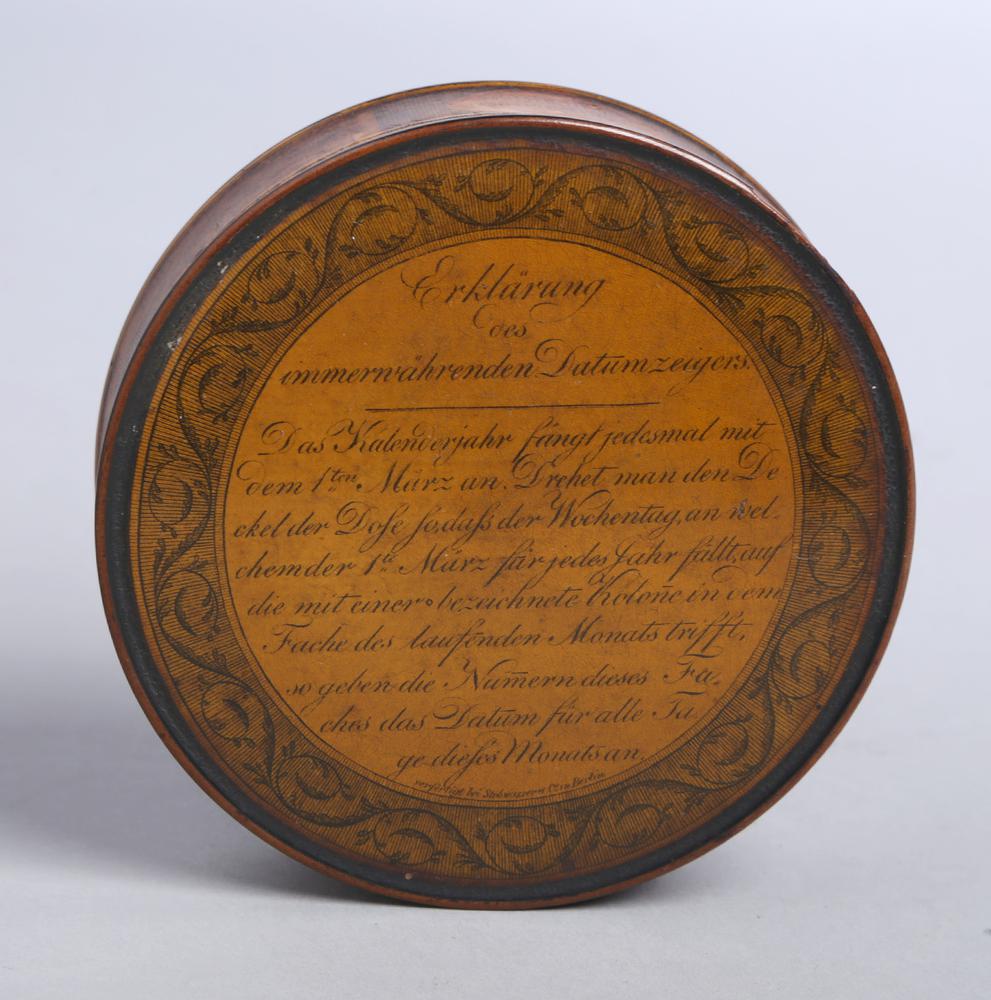 Erklärung
des
immerwährenden Datumzeigers.
Das Kalenderjahr fängt jedesmal mit
dem 1ten. März an. Drehet man den De
ckel der Dose so, daß der Wochentag, an wel-
chem der 1te März für jedes Jahr fällt, auf
die mit einer o bezeichnete Kolon̄e in dem
Fache des laufenden Monats trifft,
so geben die Num̄ern dieses Fa-
ches das Datum für alle Ta-
ge dieses Monats an.
verfertigt bei Stobwassern Co in Berlin